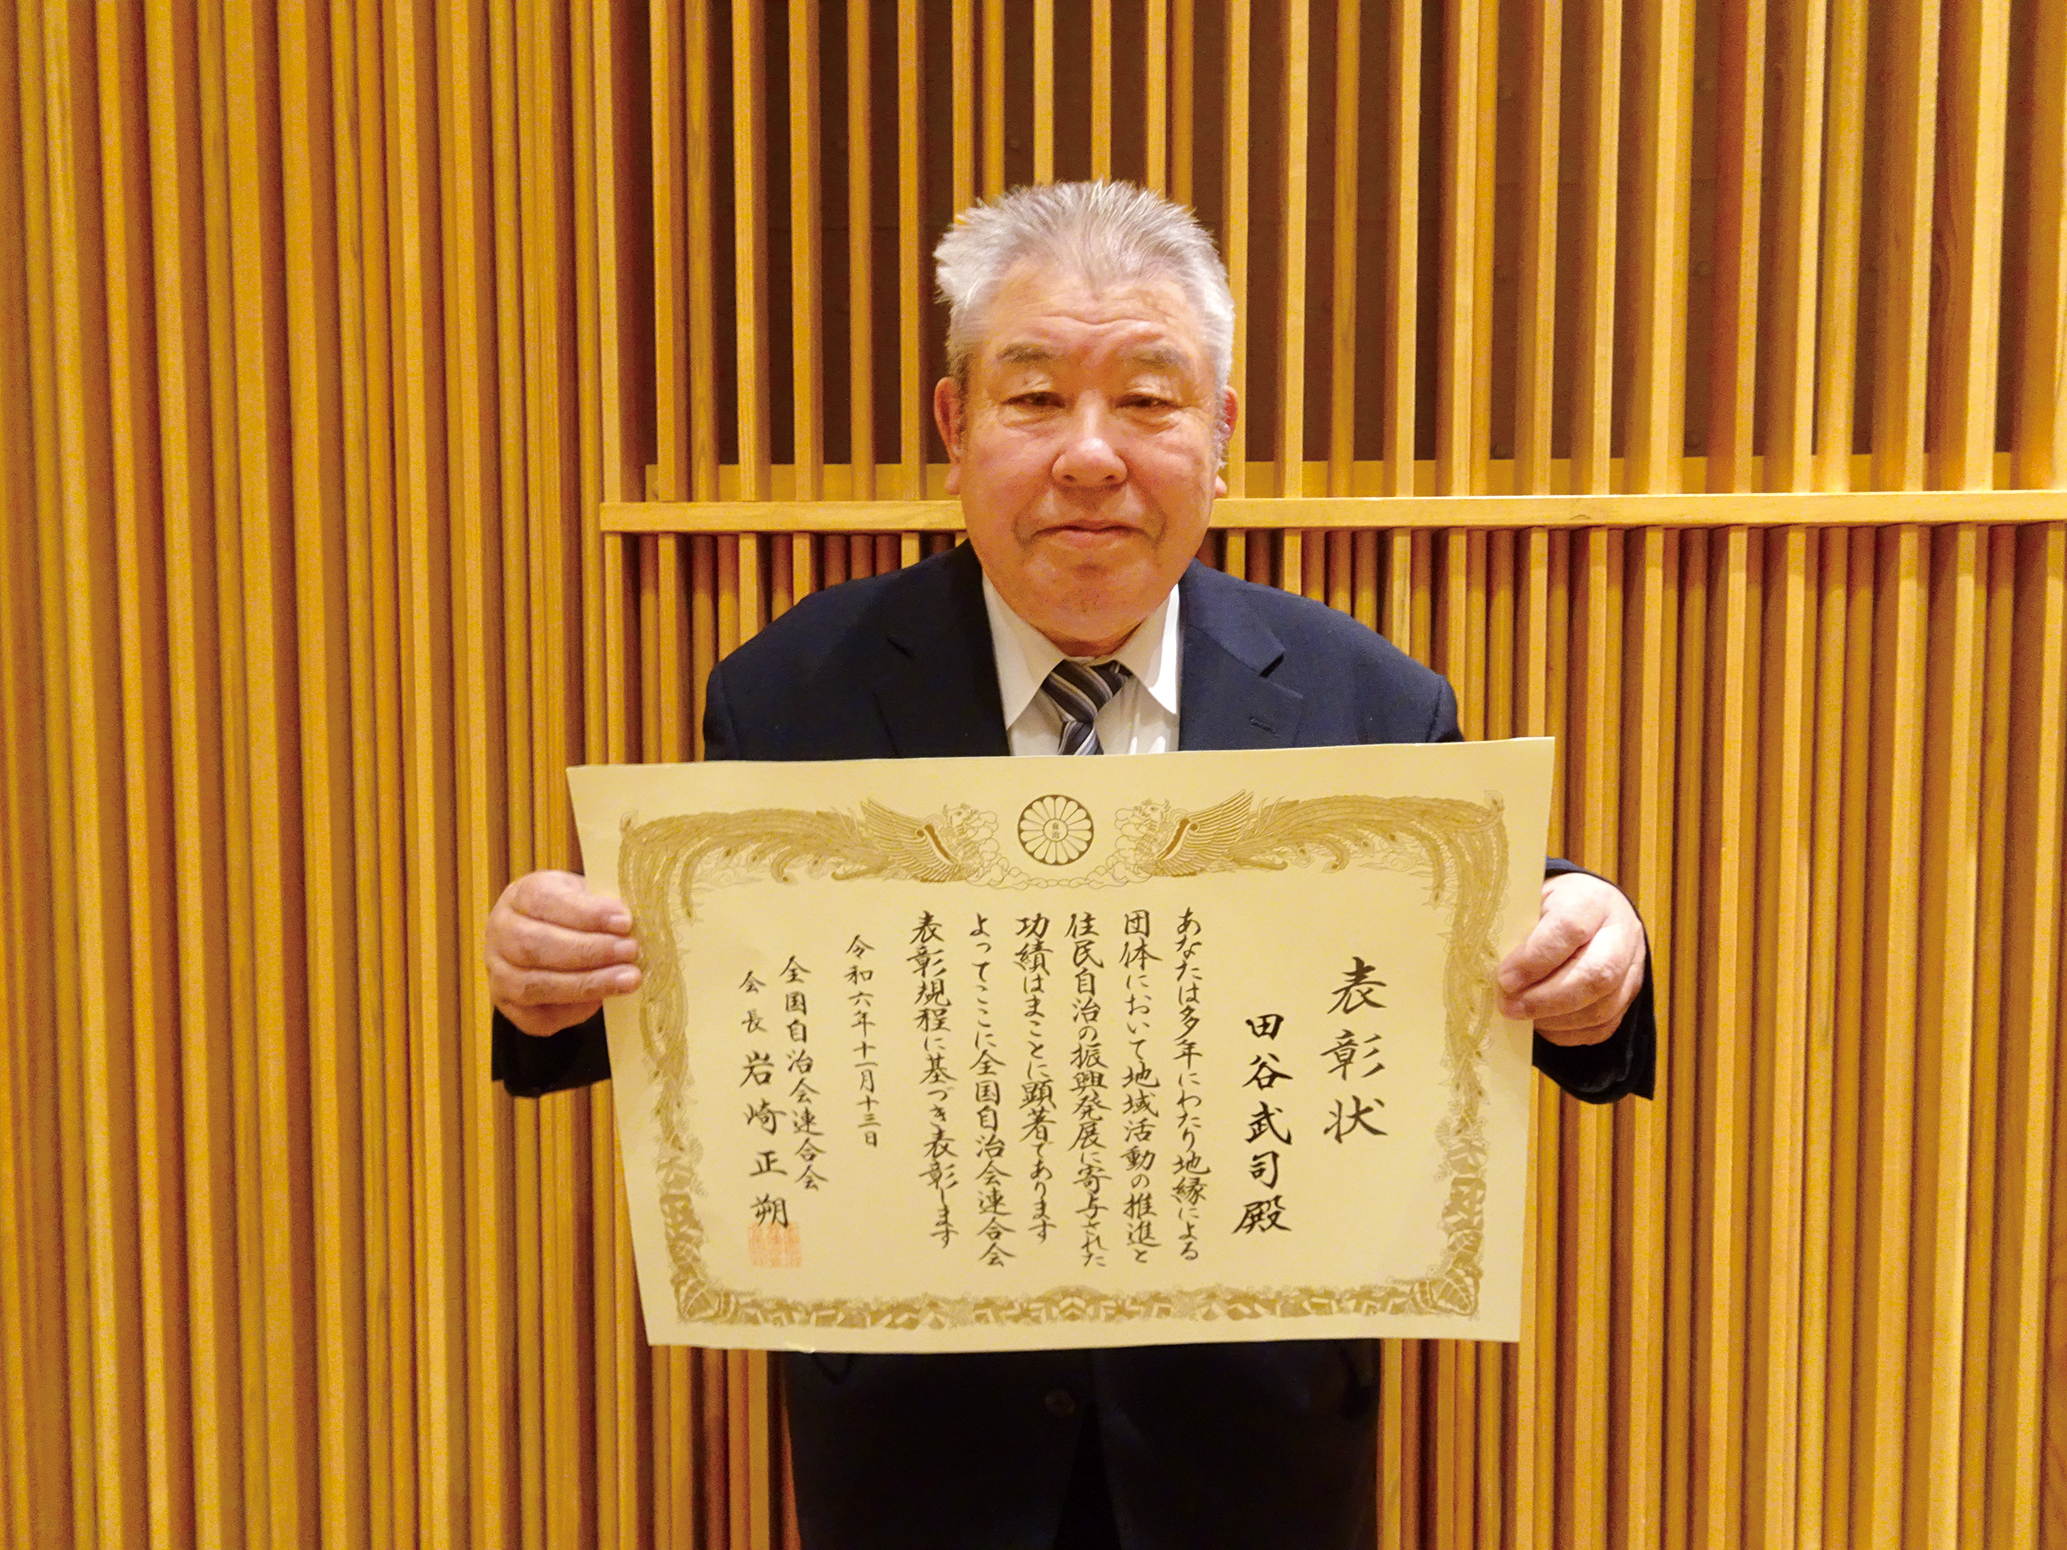 表彰状
田谷武司殿
あなたは多年にわたり地縁による
団体において地域活動の推進と
住民自治の振興発展に寄与された
功績はまことに顕著であります
よってここに全国自治会連合会
表彰規程に基づき表彰します
令和六年十一月十三日
全国自治会連合会
会長 岩崎正朔
自治